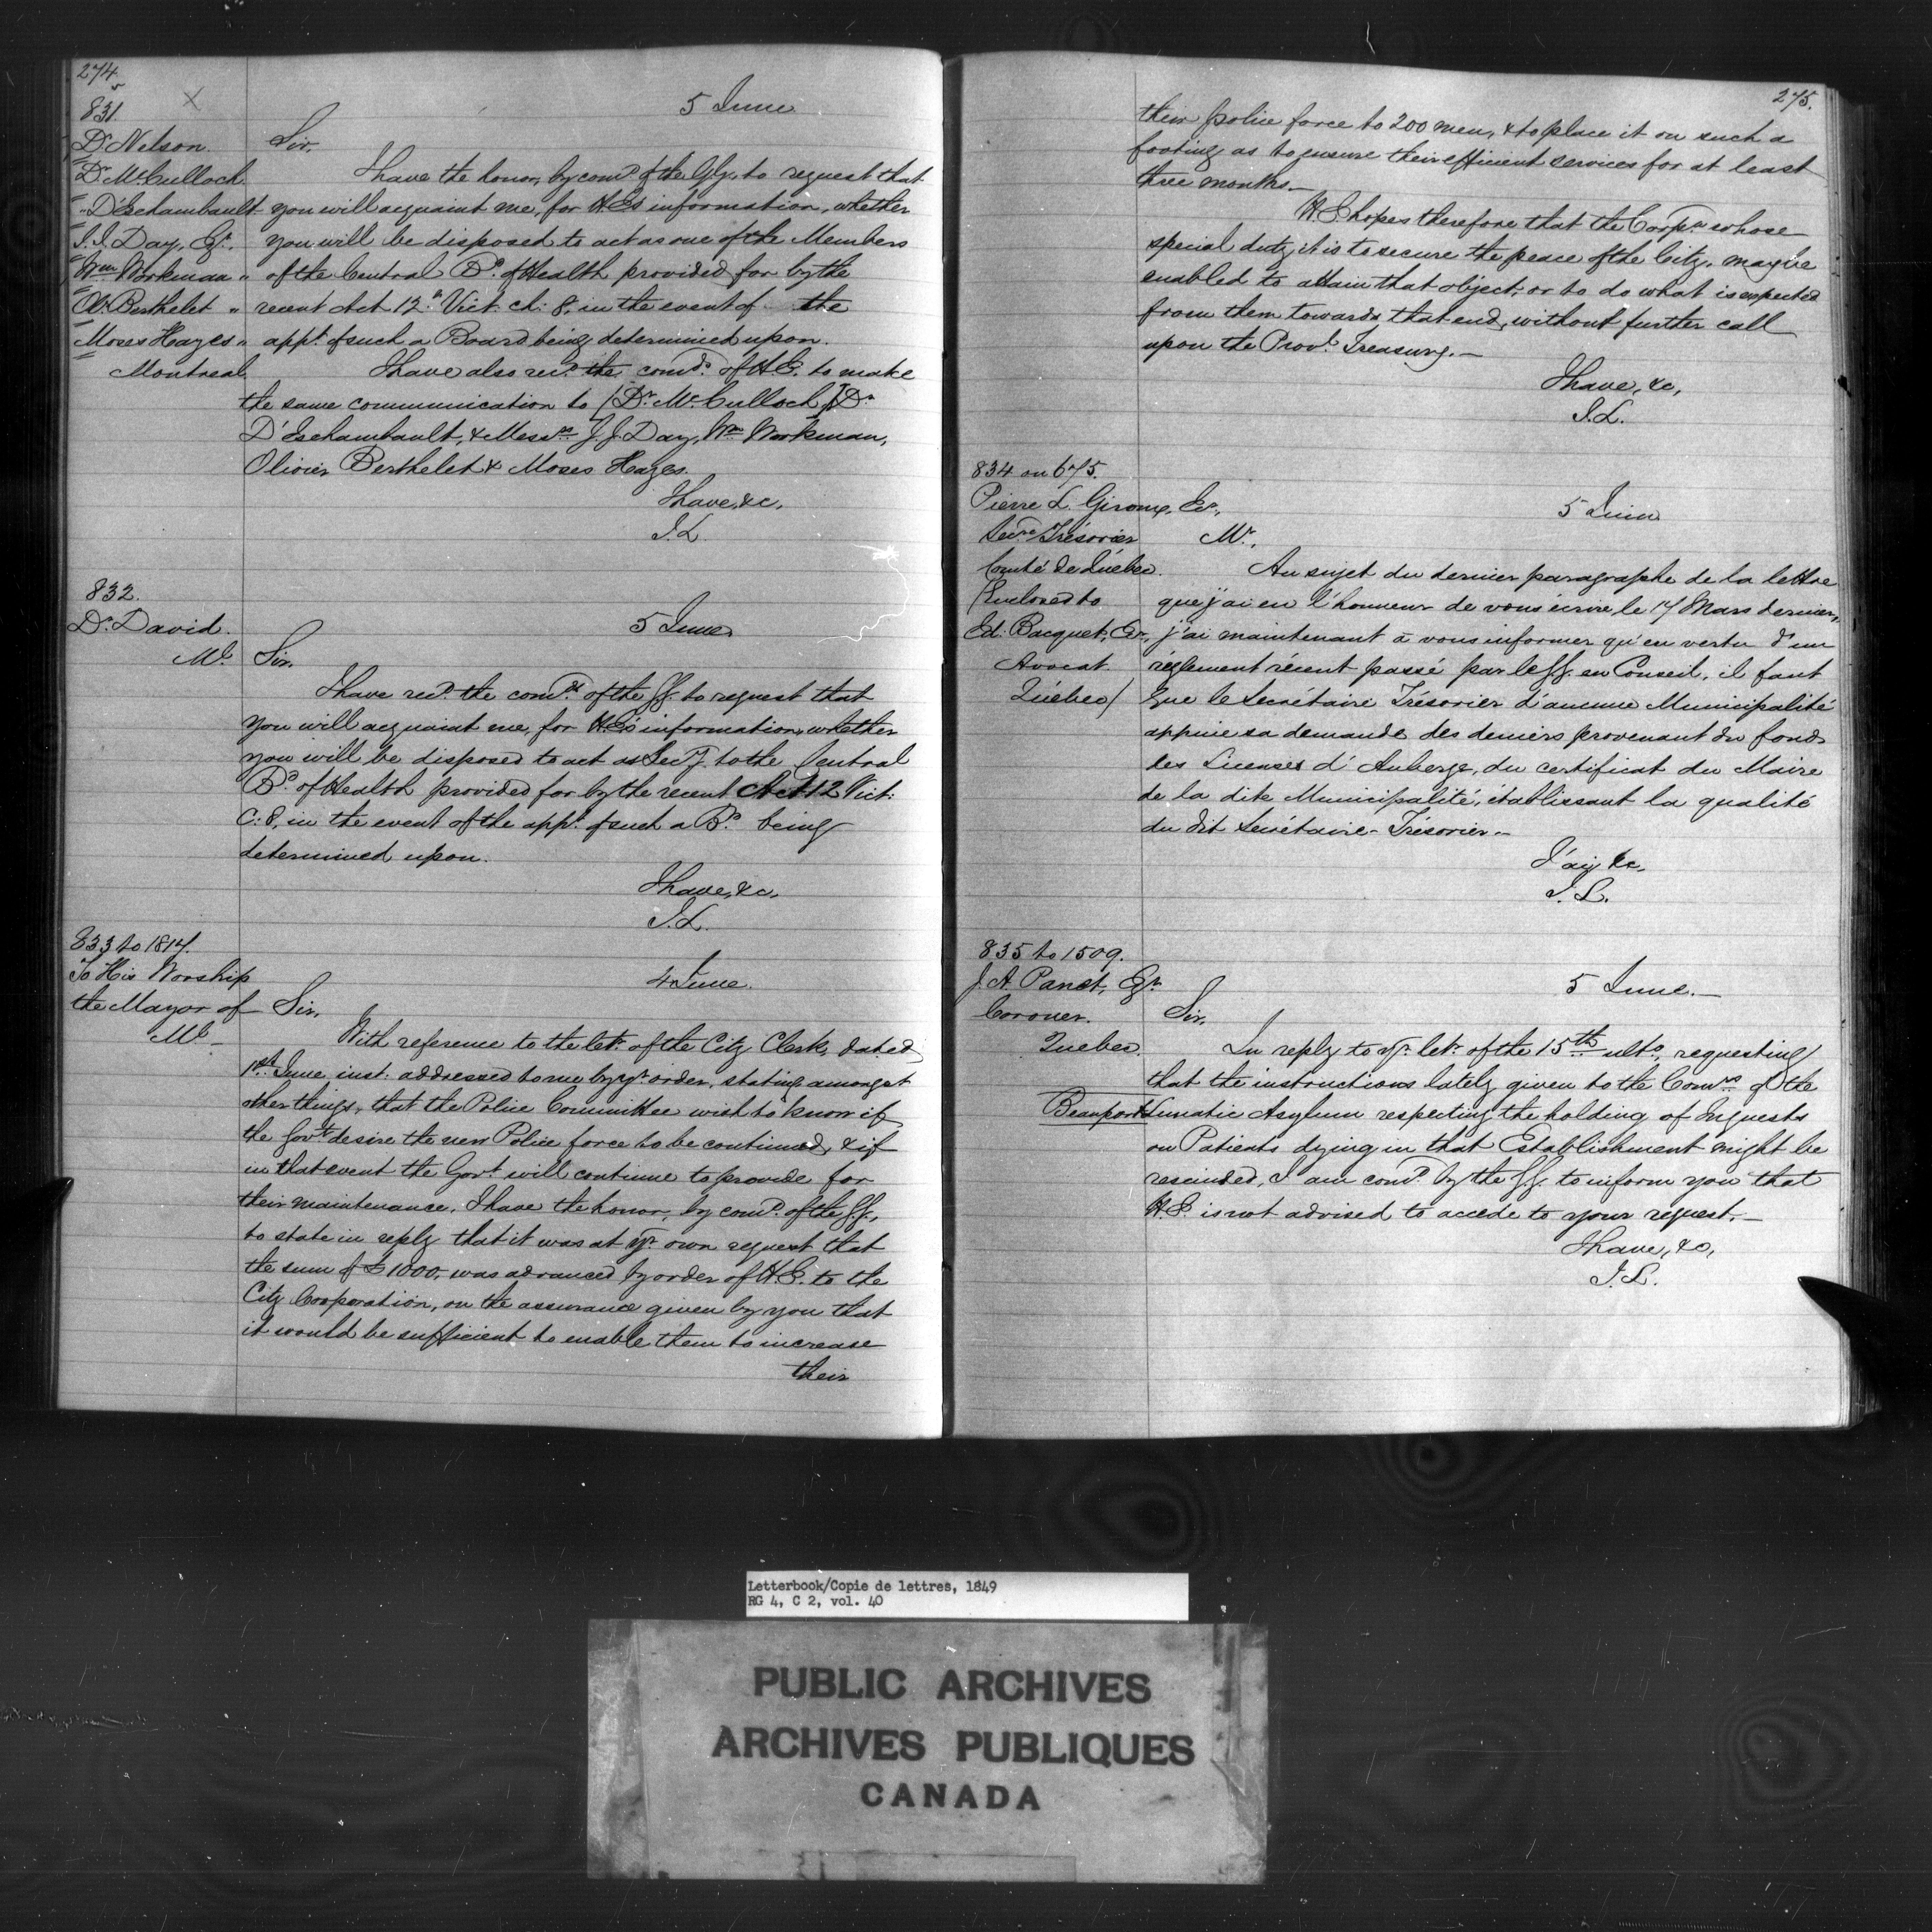 274
831
5 June
Dr. Nelson.
Sir,
Dr. McCulloch
I have the honor, by comd. of the G.G., to request that
" D'Eschambault
you will acquaint me, for H.E's information, whether
J. J. Day, Esqr.
you will be disposed to act as one of the Members
Wm Workman "
of the Central Bd. of Health provided for by the
Ol. Berthelet "
recent Act 12th Vict. ch: 8, in the event of the
Moses Hayes "
appt. of such a Board being determined upon.
Montreal
I have also recd. the comds. of H.E. to make
the same communication to (Dr. McCulloch) Dr.
D'Eschambault, & Messrs J. J. Day, Wm Workman,
Olivier Berthelet & Moses Hayes.
I have, &c,
J. L.
832.
Dr. David.
5 June
Ml.
Sir,
I have recd. the comds of the G.G. to request that
you will acquaint me, for H.E's information, whether
you will be disposed to act as Secy to the Central
Bd. of Health provided for by the recent Act 12 Vict:
C: 8, in the event of the appt. of such a Bd. being
determined upon.
I have, &c,
J. L.
833 to 1817.
To His Worship
4 June.
the Mayor of
Sir,
Ml
With reference to the letr. of the City Clerk, dated
1st June inst. addressed to me by yr order, stating amongst
other things, that the Police Committee wish to know if
the Govt. desire the new Police force to be continued, & if
in that event the Govt will continue to provide for
their maintenance, I have the honor, by comd. of the G.G.,
to state in reply that it was at yr. own request that
the sum of £1000, was advanced by order of H.E. to the
City Corporation, on the assurance given by you that
it would be sufficient to enable them to increase
their
275.
their police force to 200 men, & to place it on such a
footing as to ensure their efficient services for at least
three months.—
H.E. hopes therefore that the Corpn. whose
special duty it is to secure the peace of the City, may be
enabled to attain that object, or to do what is expected
from them towards that end, without further call
upon the Provl. Treasury.—
I have, &c,
J. L.
834 on 675.
Pierre L. Giroux, Er.,
5 Juin
Secre Trésorier
Mr.,
Comté de Québec.
Au sujet du dernier paragraphe de la lettre
(Enclosed to
que j'ai eu l'honneur de vous écrire le 17 Mars dernier,
Ed. Bacquet, Er.,
j'ai maintenant à vous informer qu'en vertu d'un
Avocat
réglement récent passé par le G.G. en Conseil, il faut
Québec)
que le Secrétaire Trésorier d'aucune Municipalité
appuie sa demande des deniers provenant du fonds
des Licenses d'Auberge, du certificat du Maire
de la dite Municipalité, établissant la qualité
du dit Secrétaire-Trésorier.—
J'ai, &c,
J. L.
835 to 1509.
J. A. Panet, Esqr.
5 June.—
Coroner.
Sir,
Quebec.
In reply to yr. letr. of the 15th ulto, requesting
that the instructions lately given to the Comrs of the
Beauport Lunatic Asylum respecting the holding of Inquests
on Patients dying in that Establishment might be
rescinded, I am comd. by the G.G. to inform you that
H.E. is not advised to accede to your request.—
I have, &c,
J. L.
Letterbook/Copie de lettres, 1849
RG 4, C 2, vol. 40
PUBLIC ARCHIVES
ARCHIVES PUBLIQUES
CANADA